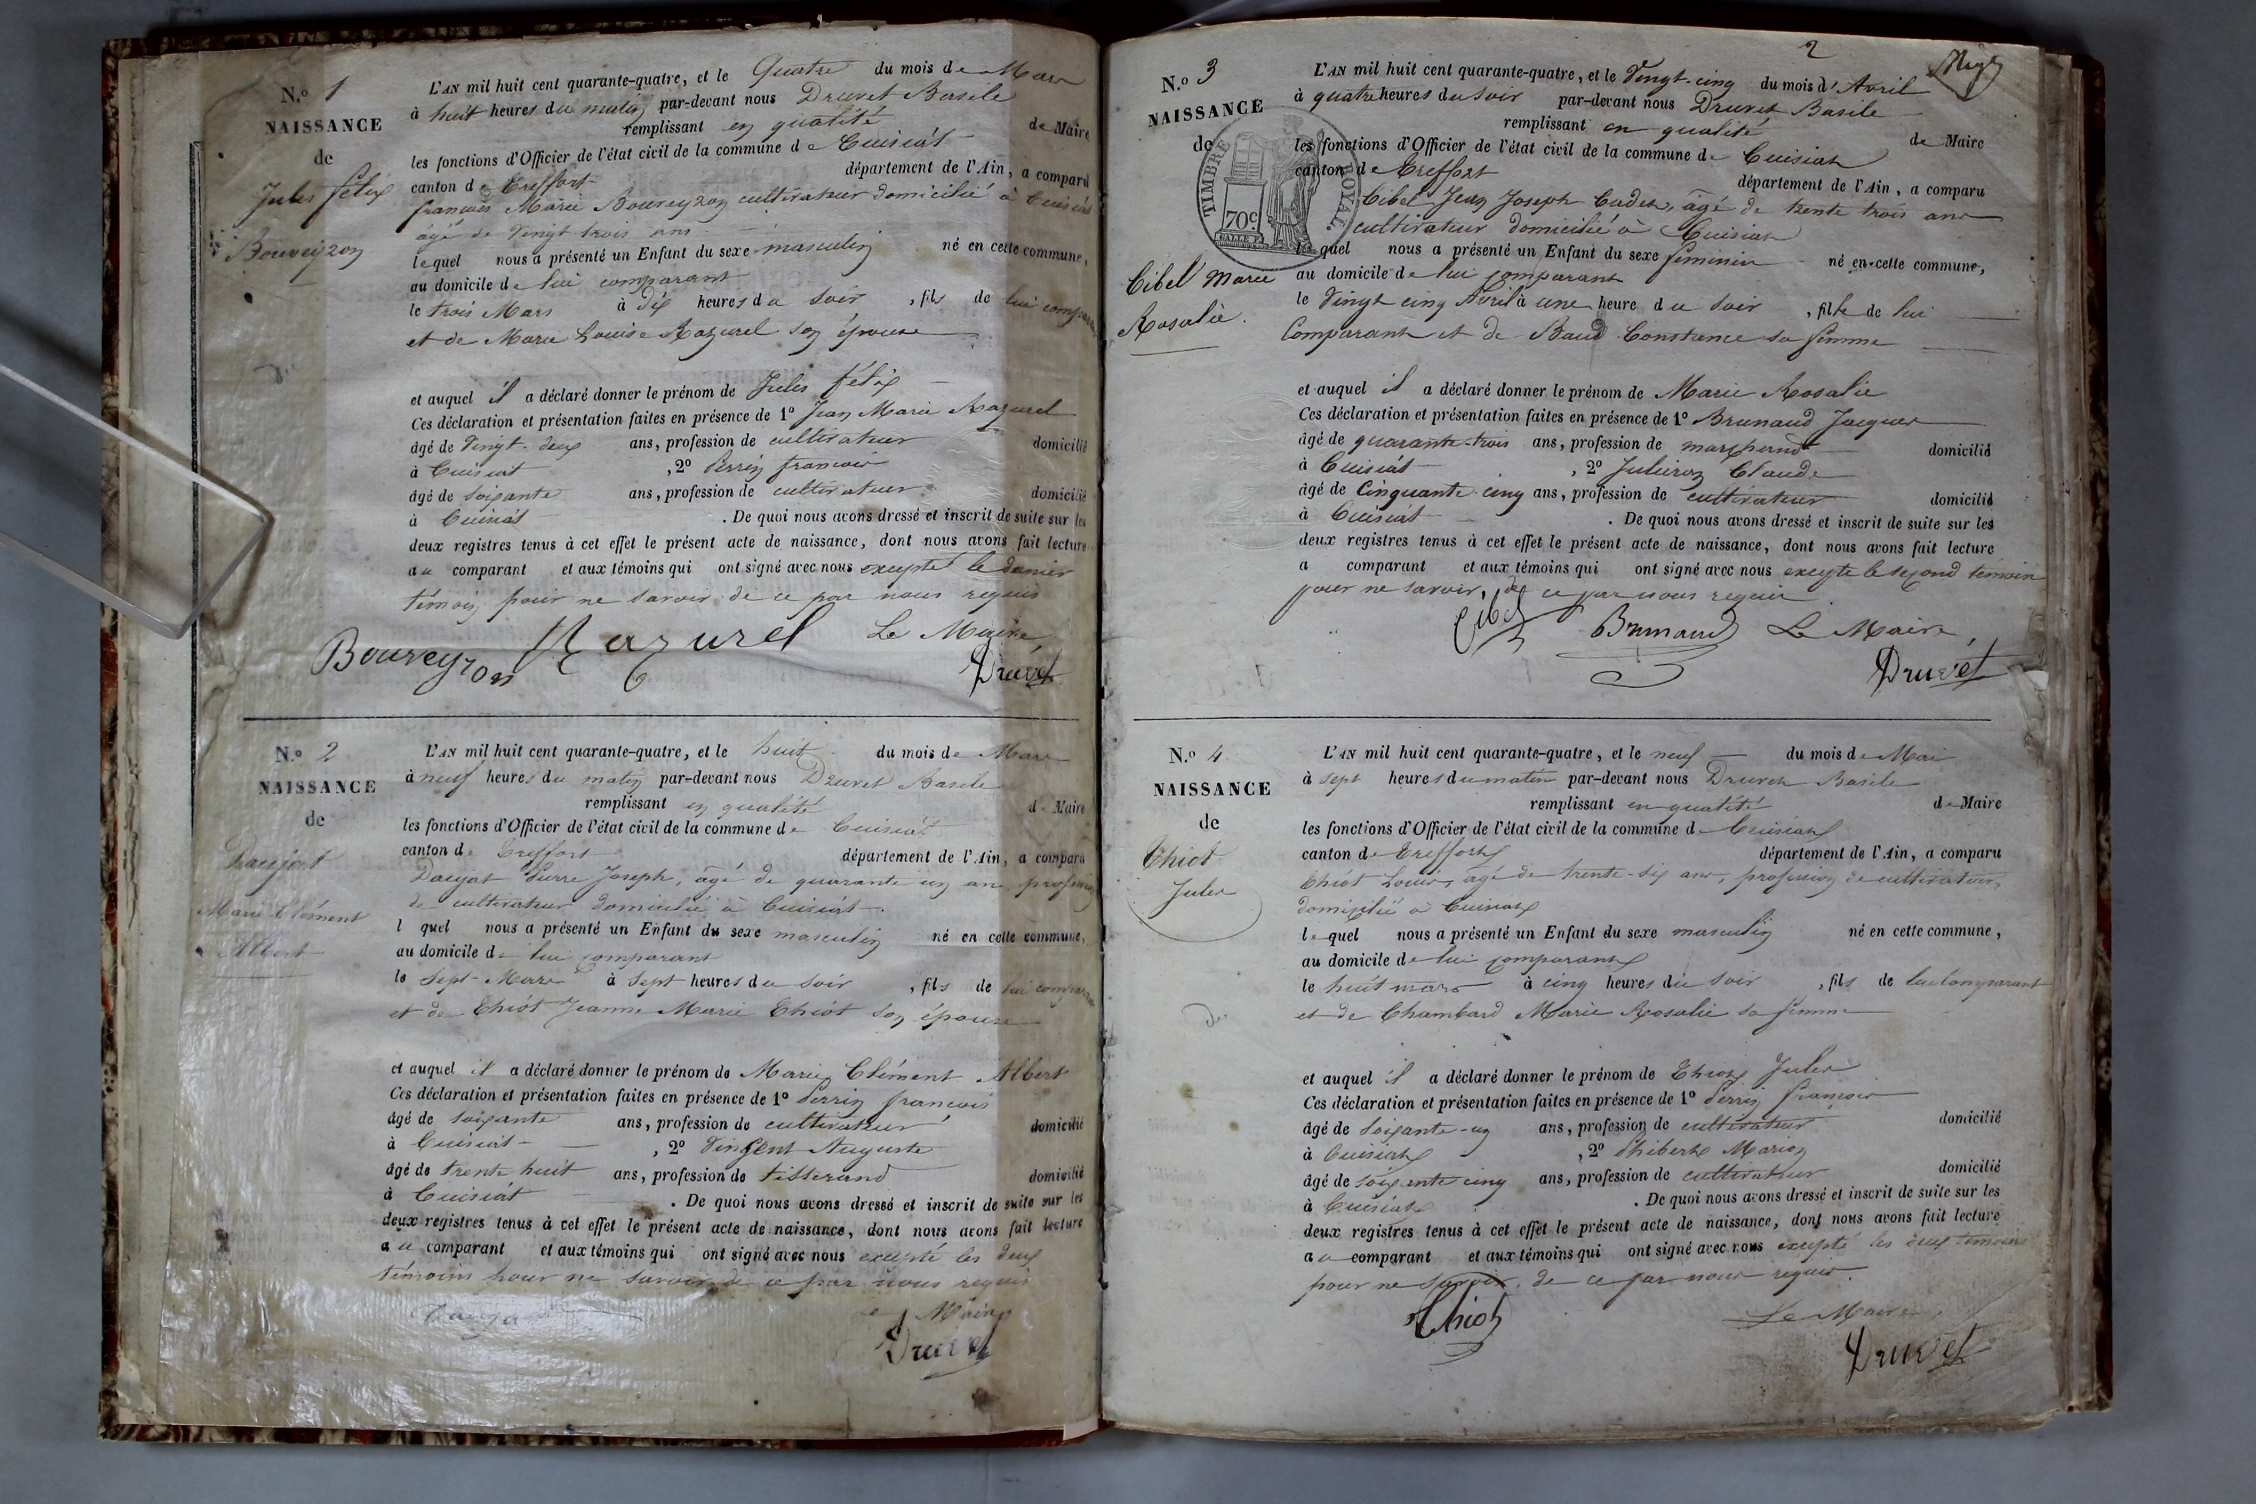 N.o 1
NAISSANCE
de
Jules félix
Bouveyron
L'AN mil huit cent quarante-quatre, et le Quatre du mois de Mars
à huit heures du matin par-devant nous Druvet Basile
remplissant en qualité de Maire
les fonctions d'Officier de l'état civil de la commune de Cuisiat
canton de Treffort département de l'Ain, a comparu
francois Marie Bouveyron cultivateur domicilié à Cuisiat
âgé de vingt trois ans
lequel nous a présenté un Enfant du sexe masculin né en cette commune,
au domicile de lui comparant
le trois Mars à dix heures du soir, fils de lui comparant
et de Marie Louise Razurel son épouse
et auquel il a déclaré donner le prénom de Jules félix
Ces déclaration et présentation faites en présence de 1o Jean Marie Razurel
âgé de vingt-deux ans, profession de cultivateur domicilié
à Cuisiat, 2o Perrin francois
âgé de soixante ans, profession de cultivateur domicilié
à Cuisiat. De quoi nous avons dressé et inscrit de suite sur les
deux registres tenus à cet effet le présent acte de naissance, dont nous avons fait lecture
au comparant et aux témoins qui ont signé avec nous excepté le dernier
témoin pour ne savoir de ce par nous requis
Bouveyron Razurel Le Maire
Druvet
N.o 2
NAISSANCE
de
Daujat
Marie Clément
Albert
L'AN mil huit cent quarante-quatre, et le huit du mois de Mars
à neuf heures du matin par-devant nous Druvet Basile
remplissant en qualité de Maire
les fonctions d'Officier de l'état civil de la commune de Cuisiat
canton de Treffort département de l'Ain, a comparu
Daujat Pierre Joseph, âgé de quarante un ans, profession
de cultivateur domicilié à Cuisiat.
l quel nous a présenté un Enfant du sexe masculin né en cette commune,
au domicile de lui comparant
le sept Mars à sept heures du soir, fils de lui comparant
et de Thiót Jeanne Marie Thiót son épouse
et auquel il a déclaré donner le prénom de Marie Clément Albert
Ces déclaration et présentation faites en présence de 1o Perrin francois
âgé de soixante ans, profession de cultivateur domicilié
à Cuisiat, 2o Vincent Auguste
âgé de trente huit ans, profession de tisserand domicilié
à Cuisiat. De quoi nous avons dressé et inscrit de suite sur les
deux registres tenus à cet effet le présent acte de naissance, dont nous avons fait lecture
au comparant et aux témoins qui ont signé avec nous excepté les deux
témoins pour ne savoir de ce par nous requis
Daujat Le Maire
Druvet
2
N.o 3
NAISSANCE
de
Cibel Marie
Rosalie.
TIMBRE ROYAL.
70c.
L'AN mil huit cent quarante-quatre, et le vingt-cinq du mois d'Avril
à quatre heures du soir par-devant nous Druvet Basile
remplissant en qualité de Maire
les fonctions d'Officier de l'état civil de la commune de Cuisiat
canton de Treffort département de l'Ain, a comparu
Cibel Jean Joseph Cadet, âgé de trente trois ans
cultivateur domicilié à Cuisiat
lequel nous a présenté un Enfant du sexe féminin né en cette commune,
au domicile de lui comparant
le vingt cinq Avril à une heure du soir, fille de lui
Comparant et de Baud Constance sa femme
et auquel il a déclaré donner le prénom de Marie Rosalie
Ces déclaration et présentation faites en présence de 1o Brunaud Jacques
âgé de quarante-trois ans, profession de marchand domicilié
à Cuisiat, 2o Juliéron Claude
âgé de Cinquante cinq ans, profession de cultivateur domicilié
à Cuisiat. De quoi nous avons dressé et inscrit de suite sur les
deux registres tenus à cet effet le présent acte de naissance, dont nous avons fait lecture
a comparant et aux témoins qui ont signé avec nous excepte le second temoin
pour ne savoir, de ce par nous requis
Cibel Brunaud Le Maire,
Druvet
N.o 4
NAISSANCE
de
Thiot
Jules
L'AN mil huit cent quarante-quatre, et le neuf du mois de Mai
à sept heures du matin par-devant nous Druvet Basile
remplissant en qualité de Maire
les fonctions d'Officier de l'état civil de la commune de Cuisiat
canton de Treffort département de l'Ain, a comparu
Thiót Louis, âgé de trente-six ans, profession de cultivateur,
domicilié à Cuisiat
lequel nous a présenté un Enfant du sexe masculin né en cette commune,
au domicile de lui comparant
le huit mars à cinq heures du soir, fils de lui comparant
et de Chambard Marie Rosalie sa femme
et auquel il a déclaré donner le prénom de Thiot Jules
Ces déclaration et présentation faites en présence de 1o Perrin françois
âgé de soixante-un ans, profession de cultivateur domicilié
à Cuisiat, 2o Phibert Marion
âgé de soixante cinq ans, profession de cultivateur domicilié
à Cuisiat. De quoi nous avons dressé et inscrit de suite sur les
deux registres tenus à cet effet le présent acte de naissance, dont nous avons fait lecture
au comparant et aux témoins qui ont signé avec nous excepté les deux témoins
pour ne savoir, de ce par nous requis.
Thiot Le Maire,
Druvet